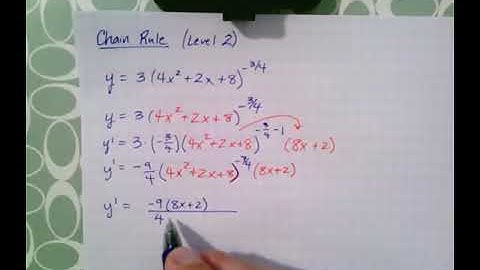 Chain Rule (Level 2)
y = 3(4x²+2x+8)^-3/4
y = 3(4x²+2x+8)^-3/4
y' = 3·(-3/4)(4x²+2x+8)^-3/4-1 (8x+2)
y' = -9/4(4x²+2x+8)^-7/4(8x+2)
y' = -9(8x+2)/4